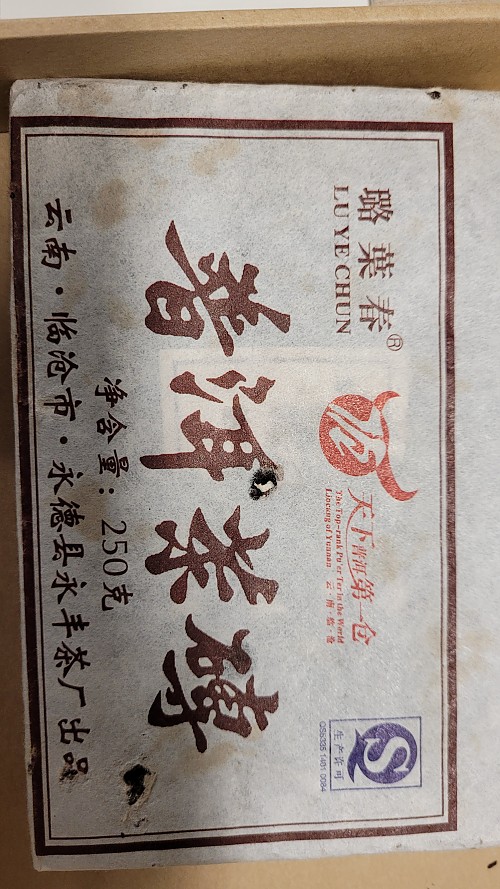 璐葉春®
LU YE CHUN
天下普洱第一仓
The Top-rank Pu'er Ter in the World
Lincang of Yunnan 云·南·临·沧
生产许可
QS5335 1401 0084
普洱茶磚
净含量：250克
云南·临沧市·永德县永丰茶厂出品